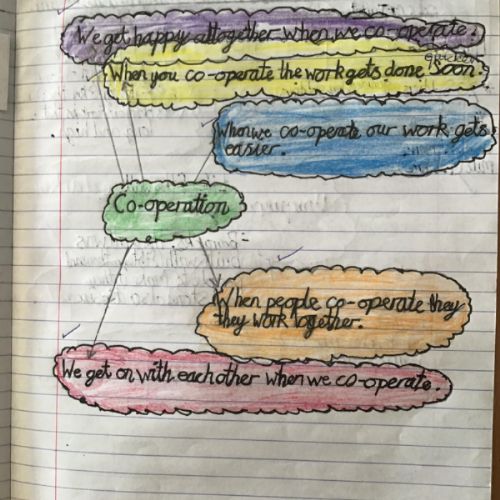 We get happy altogether when we co-operate.
quicker
When you co-operate the work gets done soon.
When we co-operate our work gets
easier.
Co-operation
When people co-operate they
they work together.
We get on with each other when we co-operate.